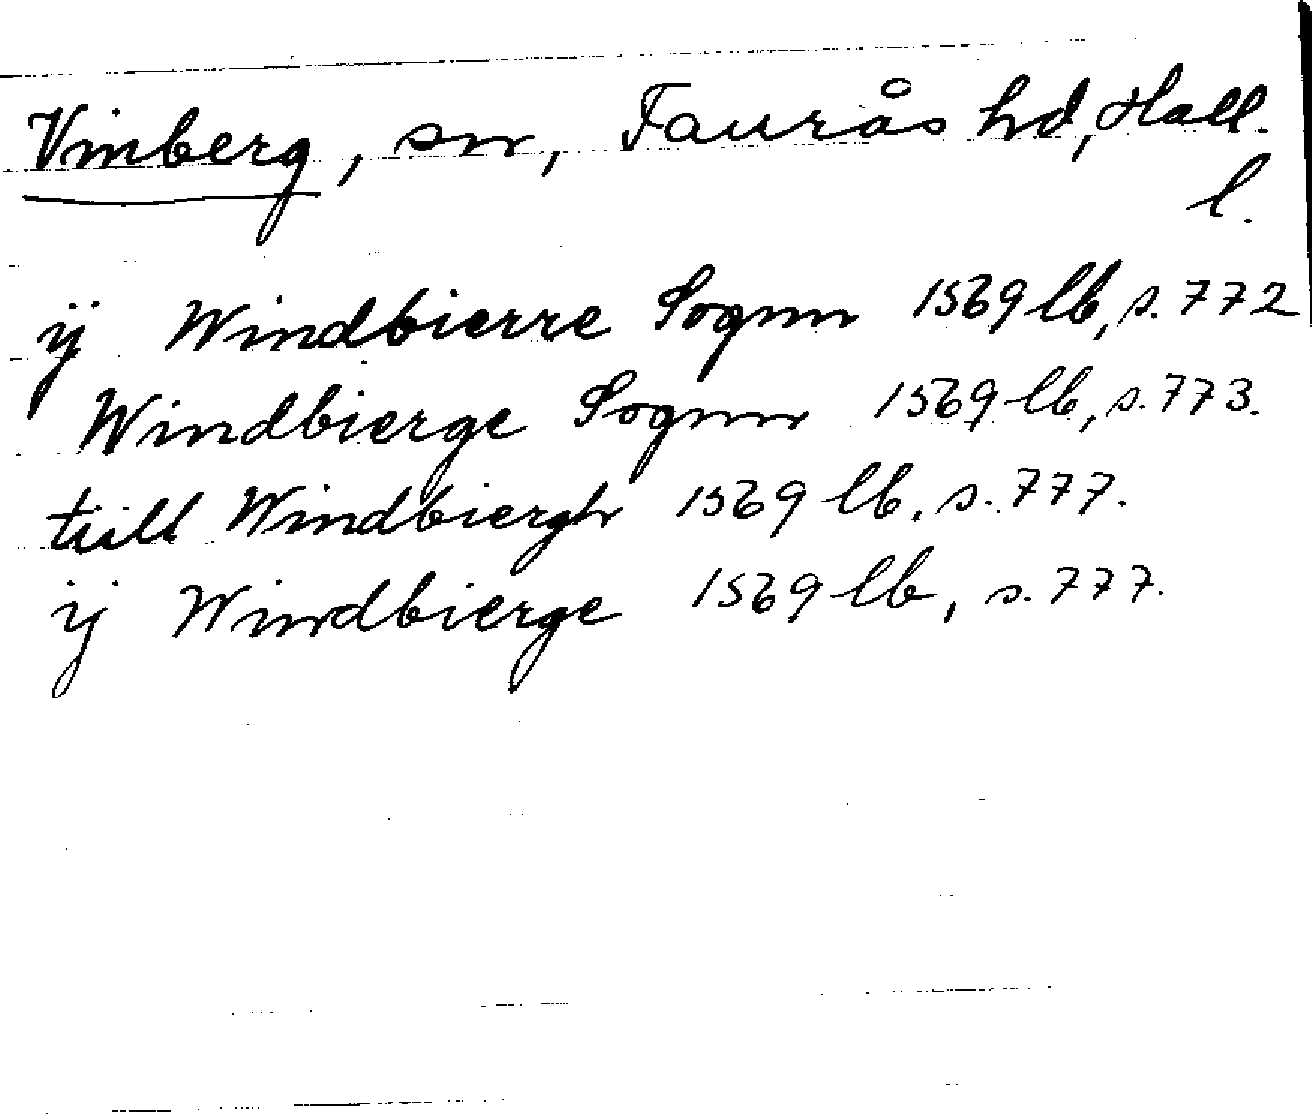 Vinberg, sn, Faurås hd, Hall.
l.
ij Windbierre Sognn 1569 lb, s. 772
Windbierge Sognn 1569 lb, s. 773.
tiill Windbiergh 1569 lb, s. 777.
ij Windbierge 1569 lb, s. 777.